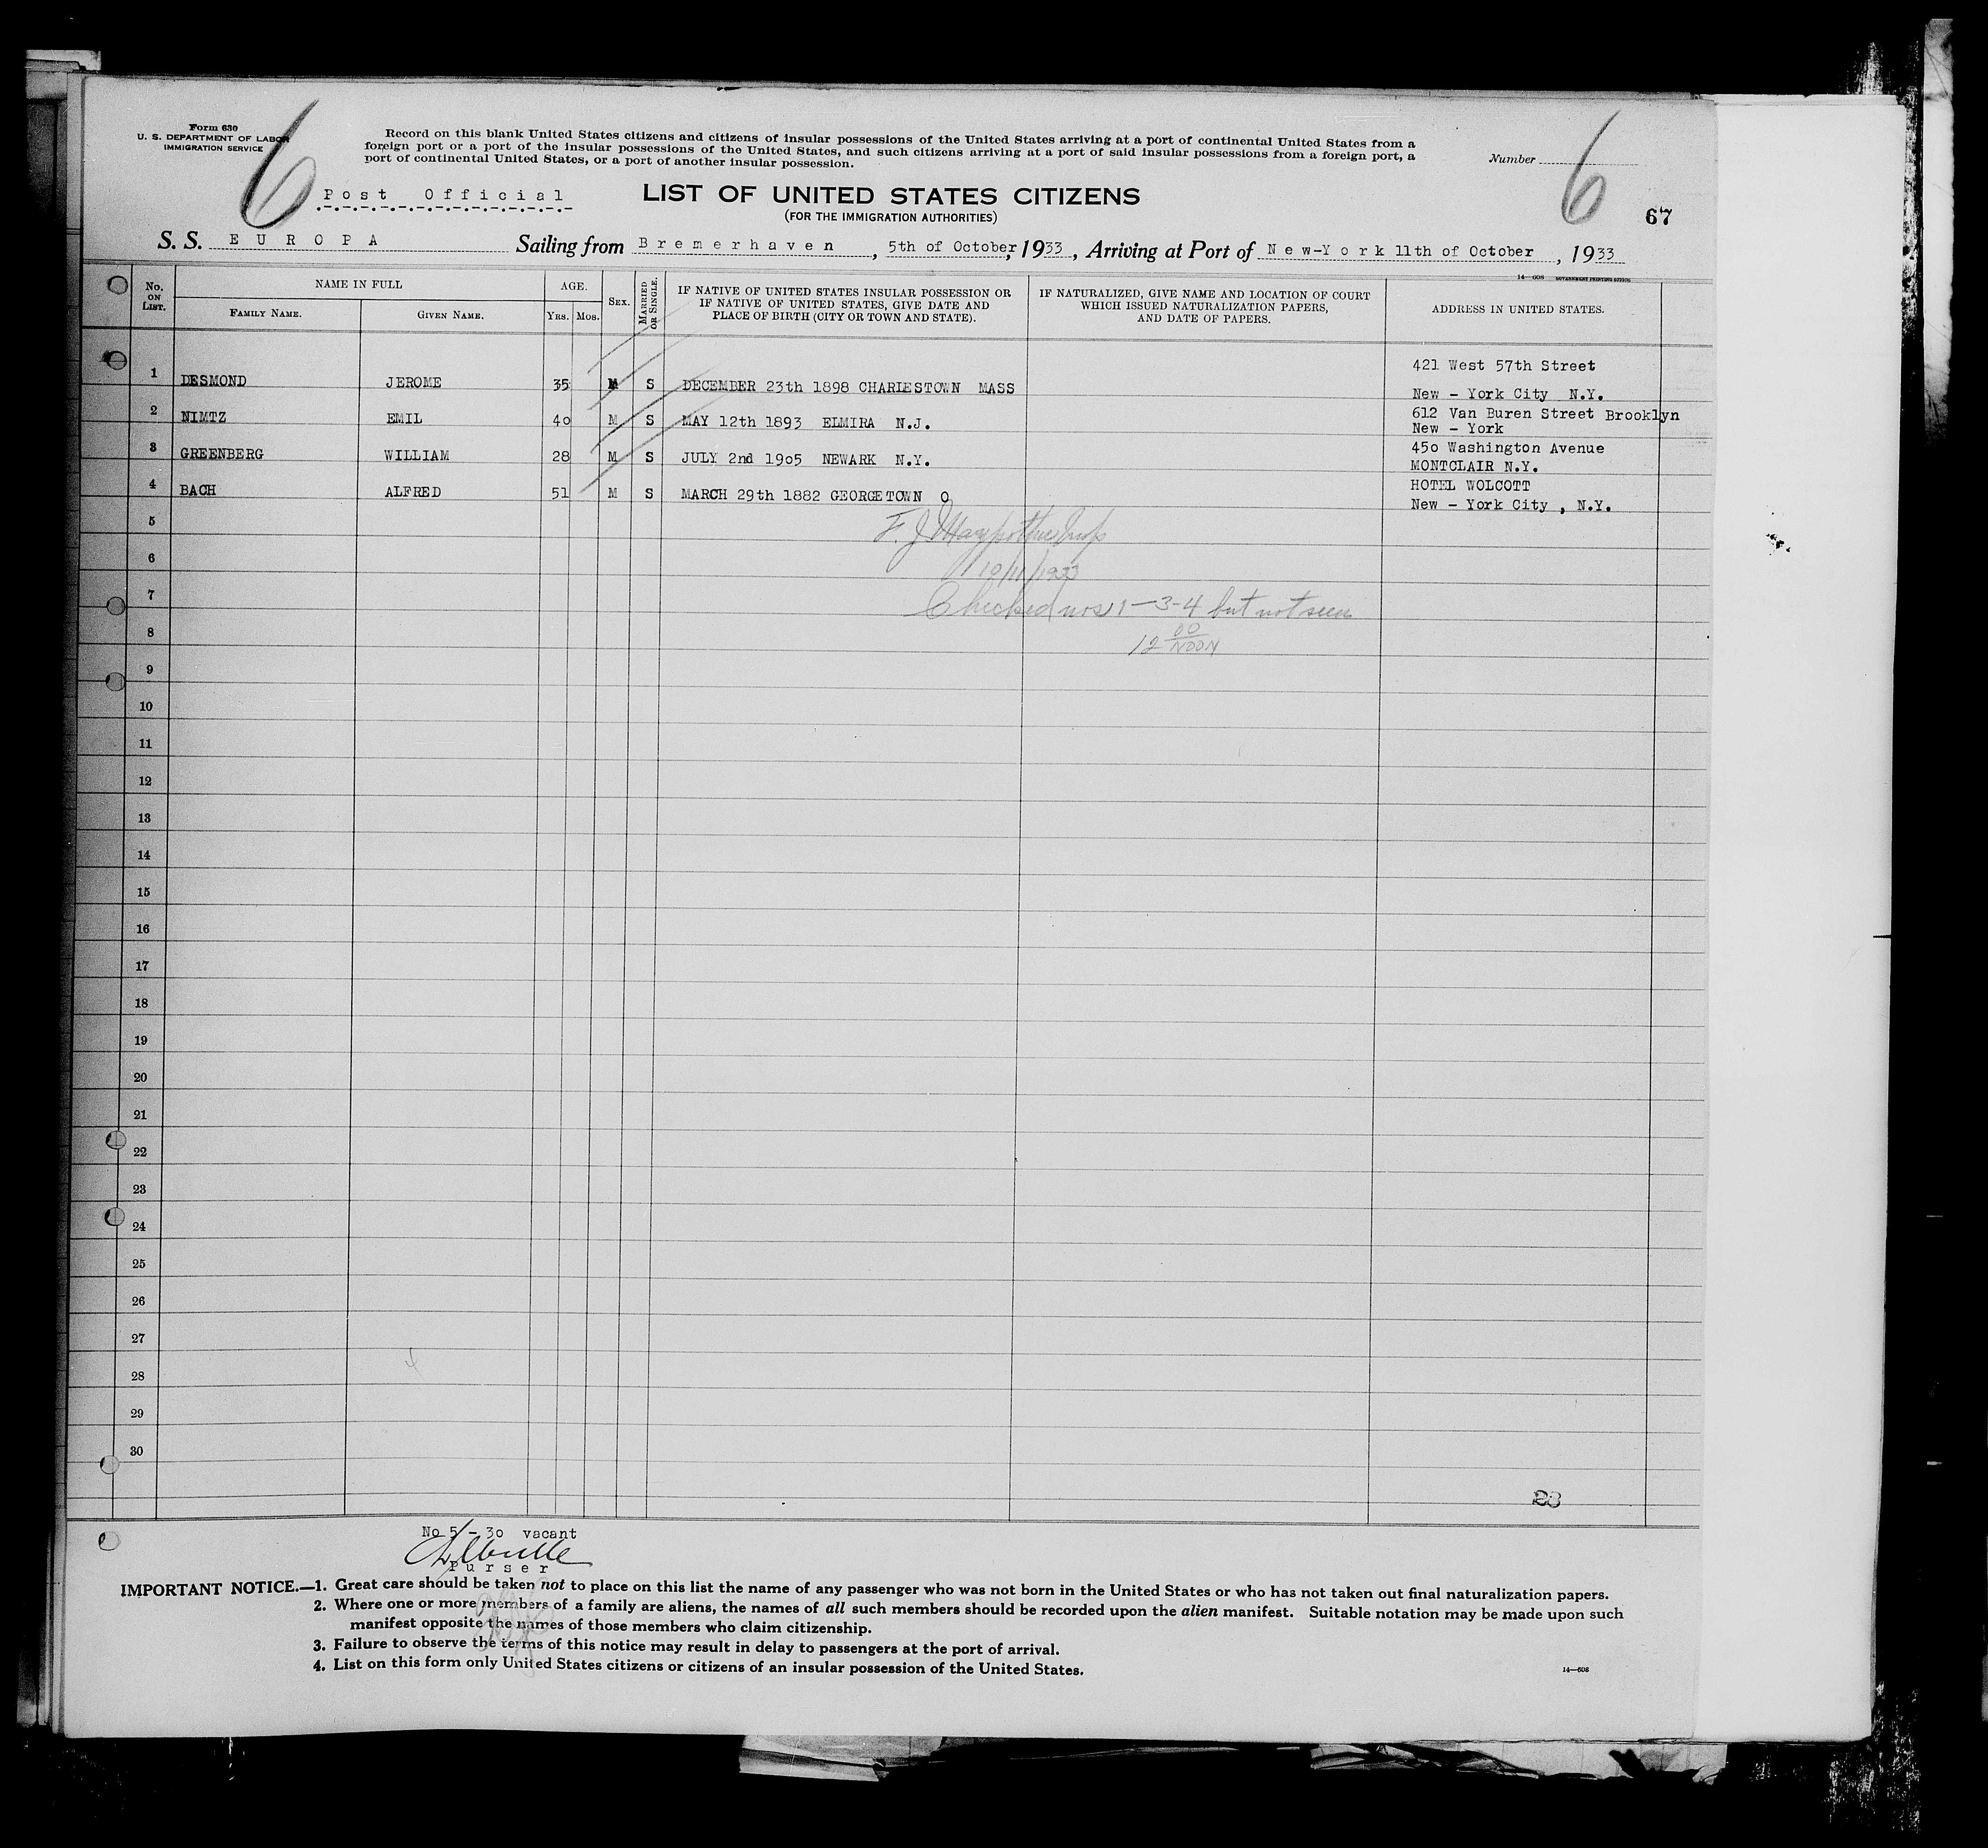 Form 630
U. S. DEPARTMENT OF LABOR
IMMIGRATION SERVICE
6
Record on this blank United States citizens and citizens of insular possessions of the United States arriving at a port of continental United States from a
foreign port or a port of the insular possessions of the United States, and such citizens arriving at a port of said insular possessions from a foreign port, a
port of continental United States, or a port of another insular possession.
Number
6
Post Official
LIST OF UNITED STATES CITIZENS
(FOR THE IMMIGRATION AUTHORITIES)
67
S. S. EUROPA Sailing from Bremerhaven, 5th of October, 1933, Arriving at Port of New-York 11th of October, 1933
14—608 GOVERNMENT PRINTING OFFICE
No. ON LIST. NAME IN FULL AGE. SEX. MARRIED OR SINGLE. IF NATIVE OF UNITED STATES INSULAR POSSESSION OR IF NATIVE OF UNITED STATES, GIVE DATE AND PLACE OF BIRTH (CITY OR TOWN AND STATE). IF NATURALIZED, GIVE NAME AND LOCATION OF COURT WHICH ISSUED NATURALIZATION PAPERS, AND DATE OF PAPERS. ADDRESS IN UNITED STATES.
FAMILY NAME. GIVEN NAME. YRS. MOS.
1 DESMOND JEROME 35 M S DECEMBER 23th 1898 CHARLESTOWN MASS 421 West 57th Street
New - York City N.Y.
2 NIMTZ EMIL 40 M S MAY 12th 1893 ELMIRA N.J. 612 Van Buren Street Brooklyn
New - York
3 GREENBERG WILLIAM 28 M S JULY 2nd 1905 NEWARK N.Y. 450 Washington Avenue
MONTCLAIR N.Y.
4 BACH ALFRED 51 M S MARCH 29th 1882 GEORGETOWN O HOTEL WOLCOTT
New - York City , N.Y.
5
F. J.
6
10/11/1933
7
Checked nos 1-3-4 but not seen
8
12 00 NOON
9
10
11
12
13
14
15
16
17
18
19
20
21
22
23
24
25
26
27
28
29
30
No 5 - 30 vacant
Purser
IMPORTANT NOTICE.—1. Great care should be taken not to place on this list the name of any passenger who was not born in the United States or who has not taken out final naturalization papers.
2. Where one or more members of a family are aliens, the names of all such members should be recorded upon the alien manifest. Suitable notation may be made upon such
manifest opposite the names of those members who claim citizenship.
3. Failure to observe the terms of this notice may result in delay to passengers at the port of arrival.
4. List on this form only United States citizens or citizens of an insular possession of the United States.
14—608